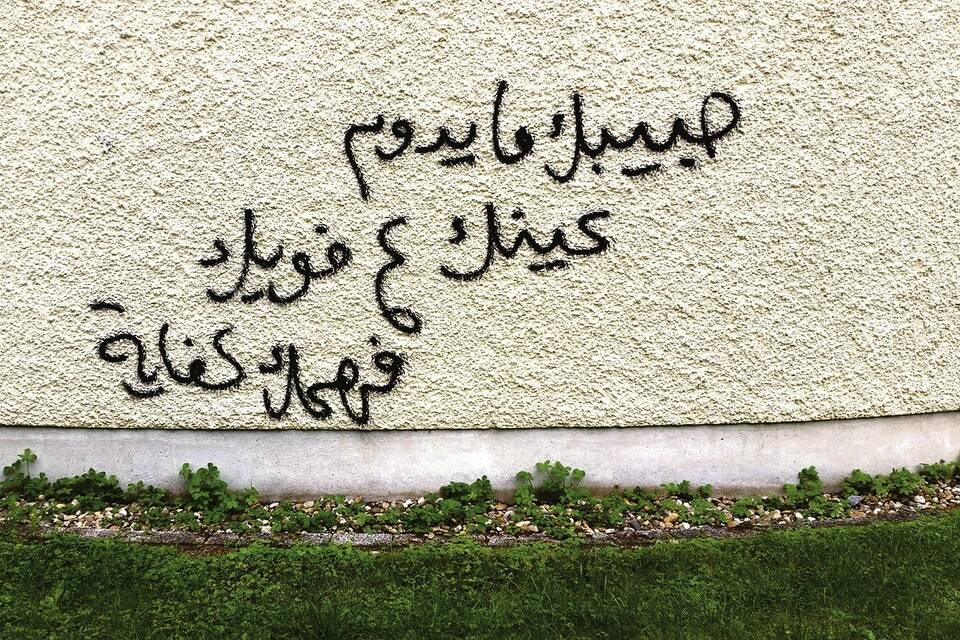 حبيبك مايدوم
عينك ع
فهمك كفاية